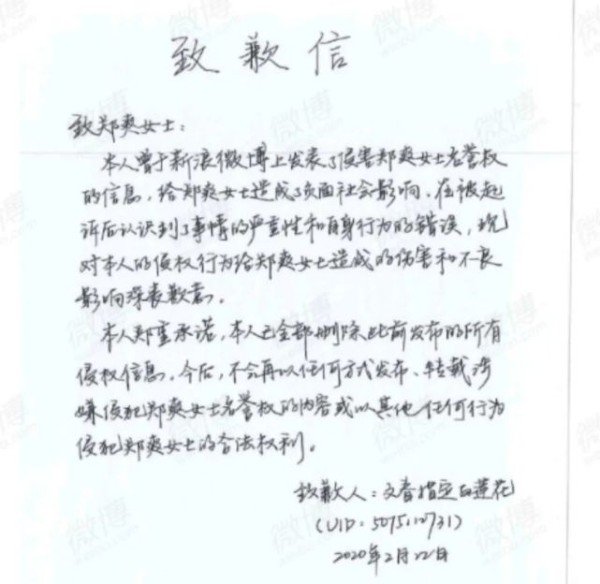 致歉信
致郑爽女士：
本人曾于新浪微博上发表了侵害郑爽女士名誉权
的信息，给郑爽女士造成了负面社会影响。在被起
诉后认识到了事情的严重性和自身行为的错误，现
对本人的侵权行为给郑爽女士造成的伤害和不良
影响深表歉意。
本人郑重承诺，本人已全部删除此前发布的所有
侵权信息。今后，不会再以任何方式发布、转载涉
嫌侵犯郑爽女士名誉权的内容或以其他任何行为
侵犯郑爽女士的合法权利。
致歉人：文春指定白莲花
(UID：5075110731)
2020年2月22日